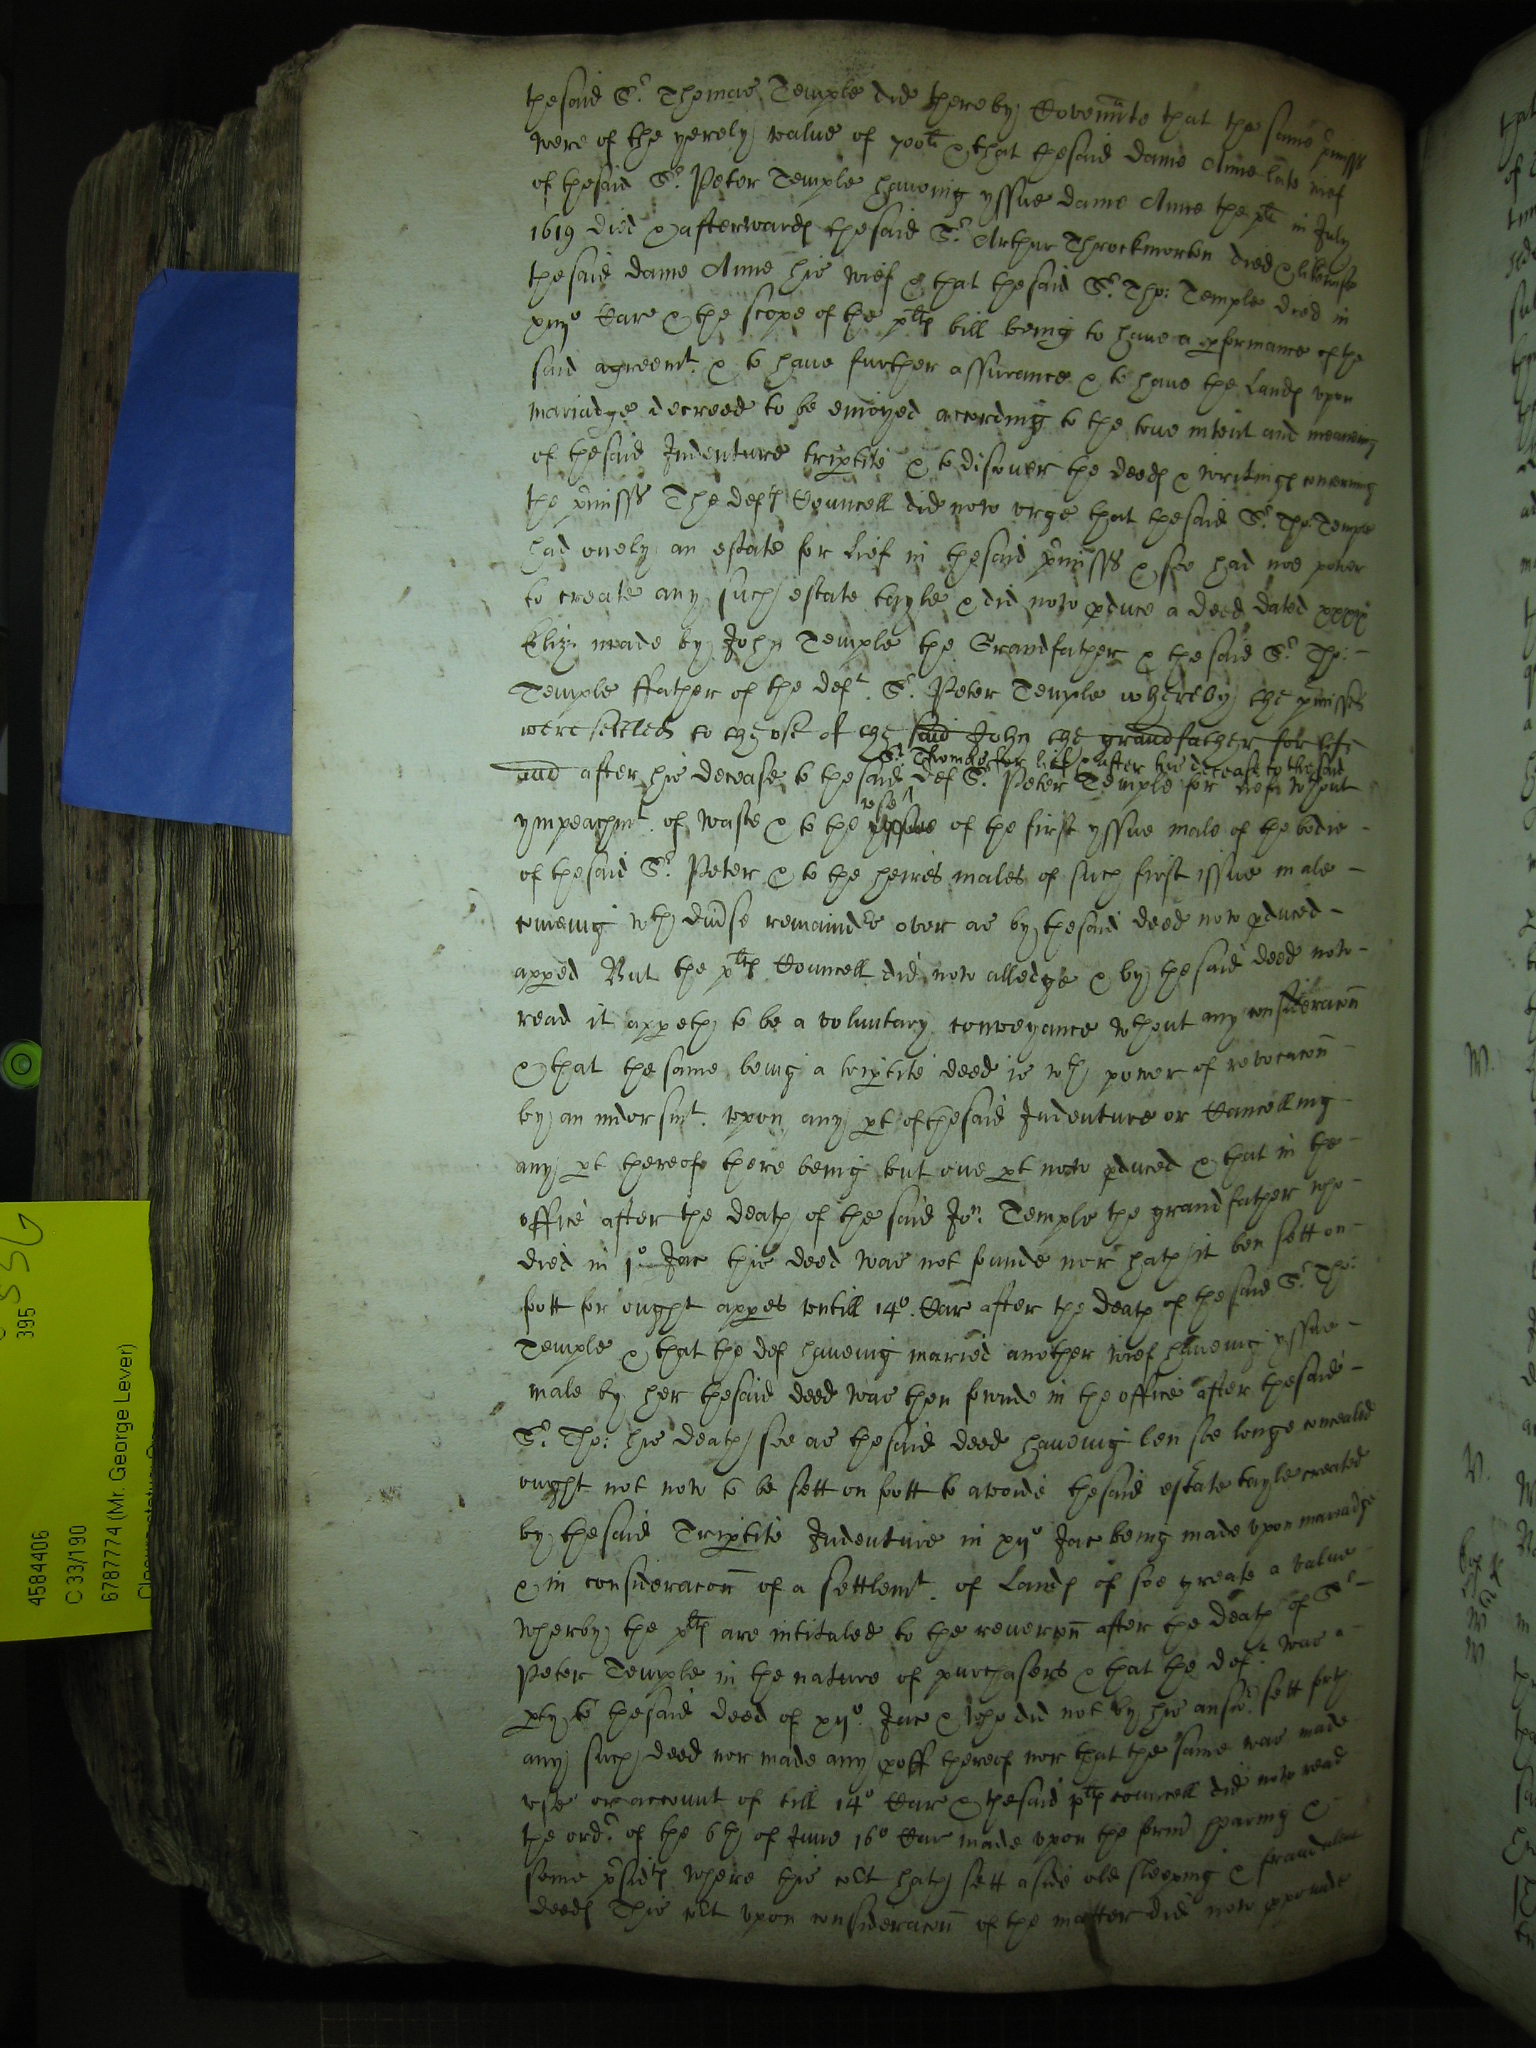 thesaid Sr. Thomas Temple did thereby Covennte that the same p'miss's
were of the yerely value of 700li & that thesaid dame Anne late wief
of thesaid Sr. Peter Temple haveing yssue dame Anne the plt in July
1619 died & afterwards thesaid Sr. Arthur Throckmorton died & likewise
thesaid dame Anne his wief & that thesaid Sr. Tho: Temple died in
xiijo Car & the scope of the plts bill being to have a pformance of the
said agreemt. & to have further assurance & to have the Lands upon
mariadge decreed to be enioyed according to the true intent and meaning
of thesaid Indenture triptite & to discover the deeds & writings concerning
the p'miss's The defts Councell did now urge that thesaid Sr. Tho: Temple
had onely an estate for lief in thesaid p'miss's & soe had noe power
to create any such estate tayle & did now pduce a deed dated xxxix
Eliz: made by John Temple the Grandfather & thesaid Sr. Tho:
Temple ffather of the deft. Sr. Peter Temple whereby the p'misses
were settled to the use of the said John the grandfather for life
Sr. Thomas for lief & after his decease to thesaid
and after his decease to thesaid def Sr. Peter Temple for lief wthout
use
ympeachmt. of waste & to the yssue of the first yssue male of the bodie
of thesaid Sr. Peter & to the heires males of such first issue male
comeing wth divse remaindrs over as by thesaid deed now pduced
apped But the plts Councell did now alledge & by thesaid deed now
read it appeth to be a voluntary conveyance wthout any consideracon
& that the same being a triptite deed is wth power of revocacon
by an indorsmt. upon any pt of thesaid Indenture or Cancelling
any pt thereof there being but one pt now pduced & that in the
office after the death of the said Jon. Temple the grandfather who
died in 1o Jac this deed was not founde nor hath it ben sett on
foot for ought appes untill 14o. Car after the death of thesaid Sr. Tho:
Temple & that the def haveing maried another wief haveing yssue
male by her thesaid deed was then founde in the office after thesaid
Sr. Tho: his death soe as thesaid deed haveing ben soe longe concealed
ought not now to be sett on foot to avoide thesaid estate tayle created
by thesaid Triptite Indenture in xijo Jac being made upon mariadge
& in consideracon of a settlemt. of Lands of soe greate a value
wherby the plts are intituled to the revercon after the death of Sr
Peter Temple in the nature of purchasers & that the deft. was a
pty to thesaid deed of xijo. Jac & who did not by his answr. sett forth
any such deed nor made any proff thereof nor that the same was made
use or account of till 14o Car & thesaid plts councell did now read
the ordr. of the 6th of June 16o Car made upon the formr hearing &
some p'sidts where this cort hath sett aside old sleeping & fraudulent
deeds This cort upon consideracon of the matter did now ppounde
4584406
C 33/190
6787774 (Mr. George Lever)
395